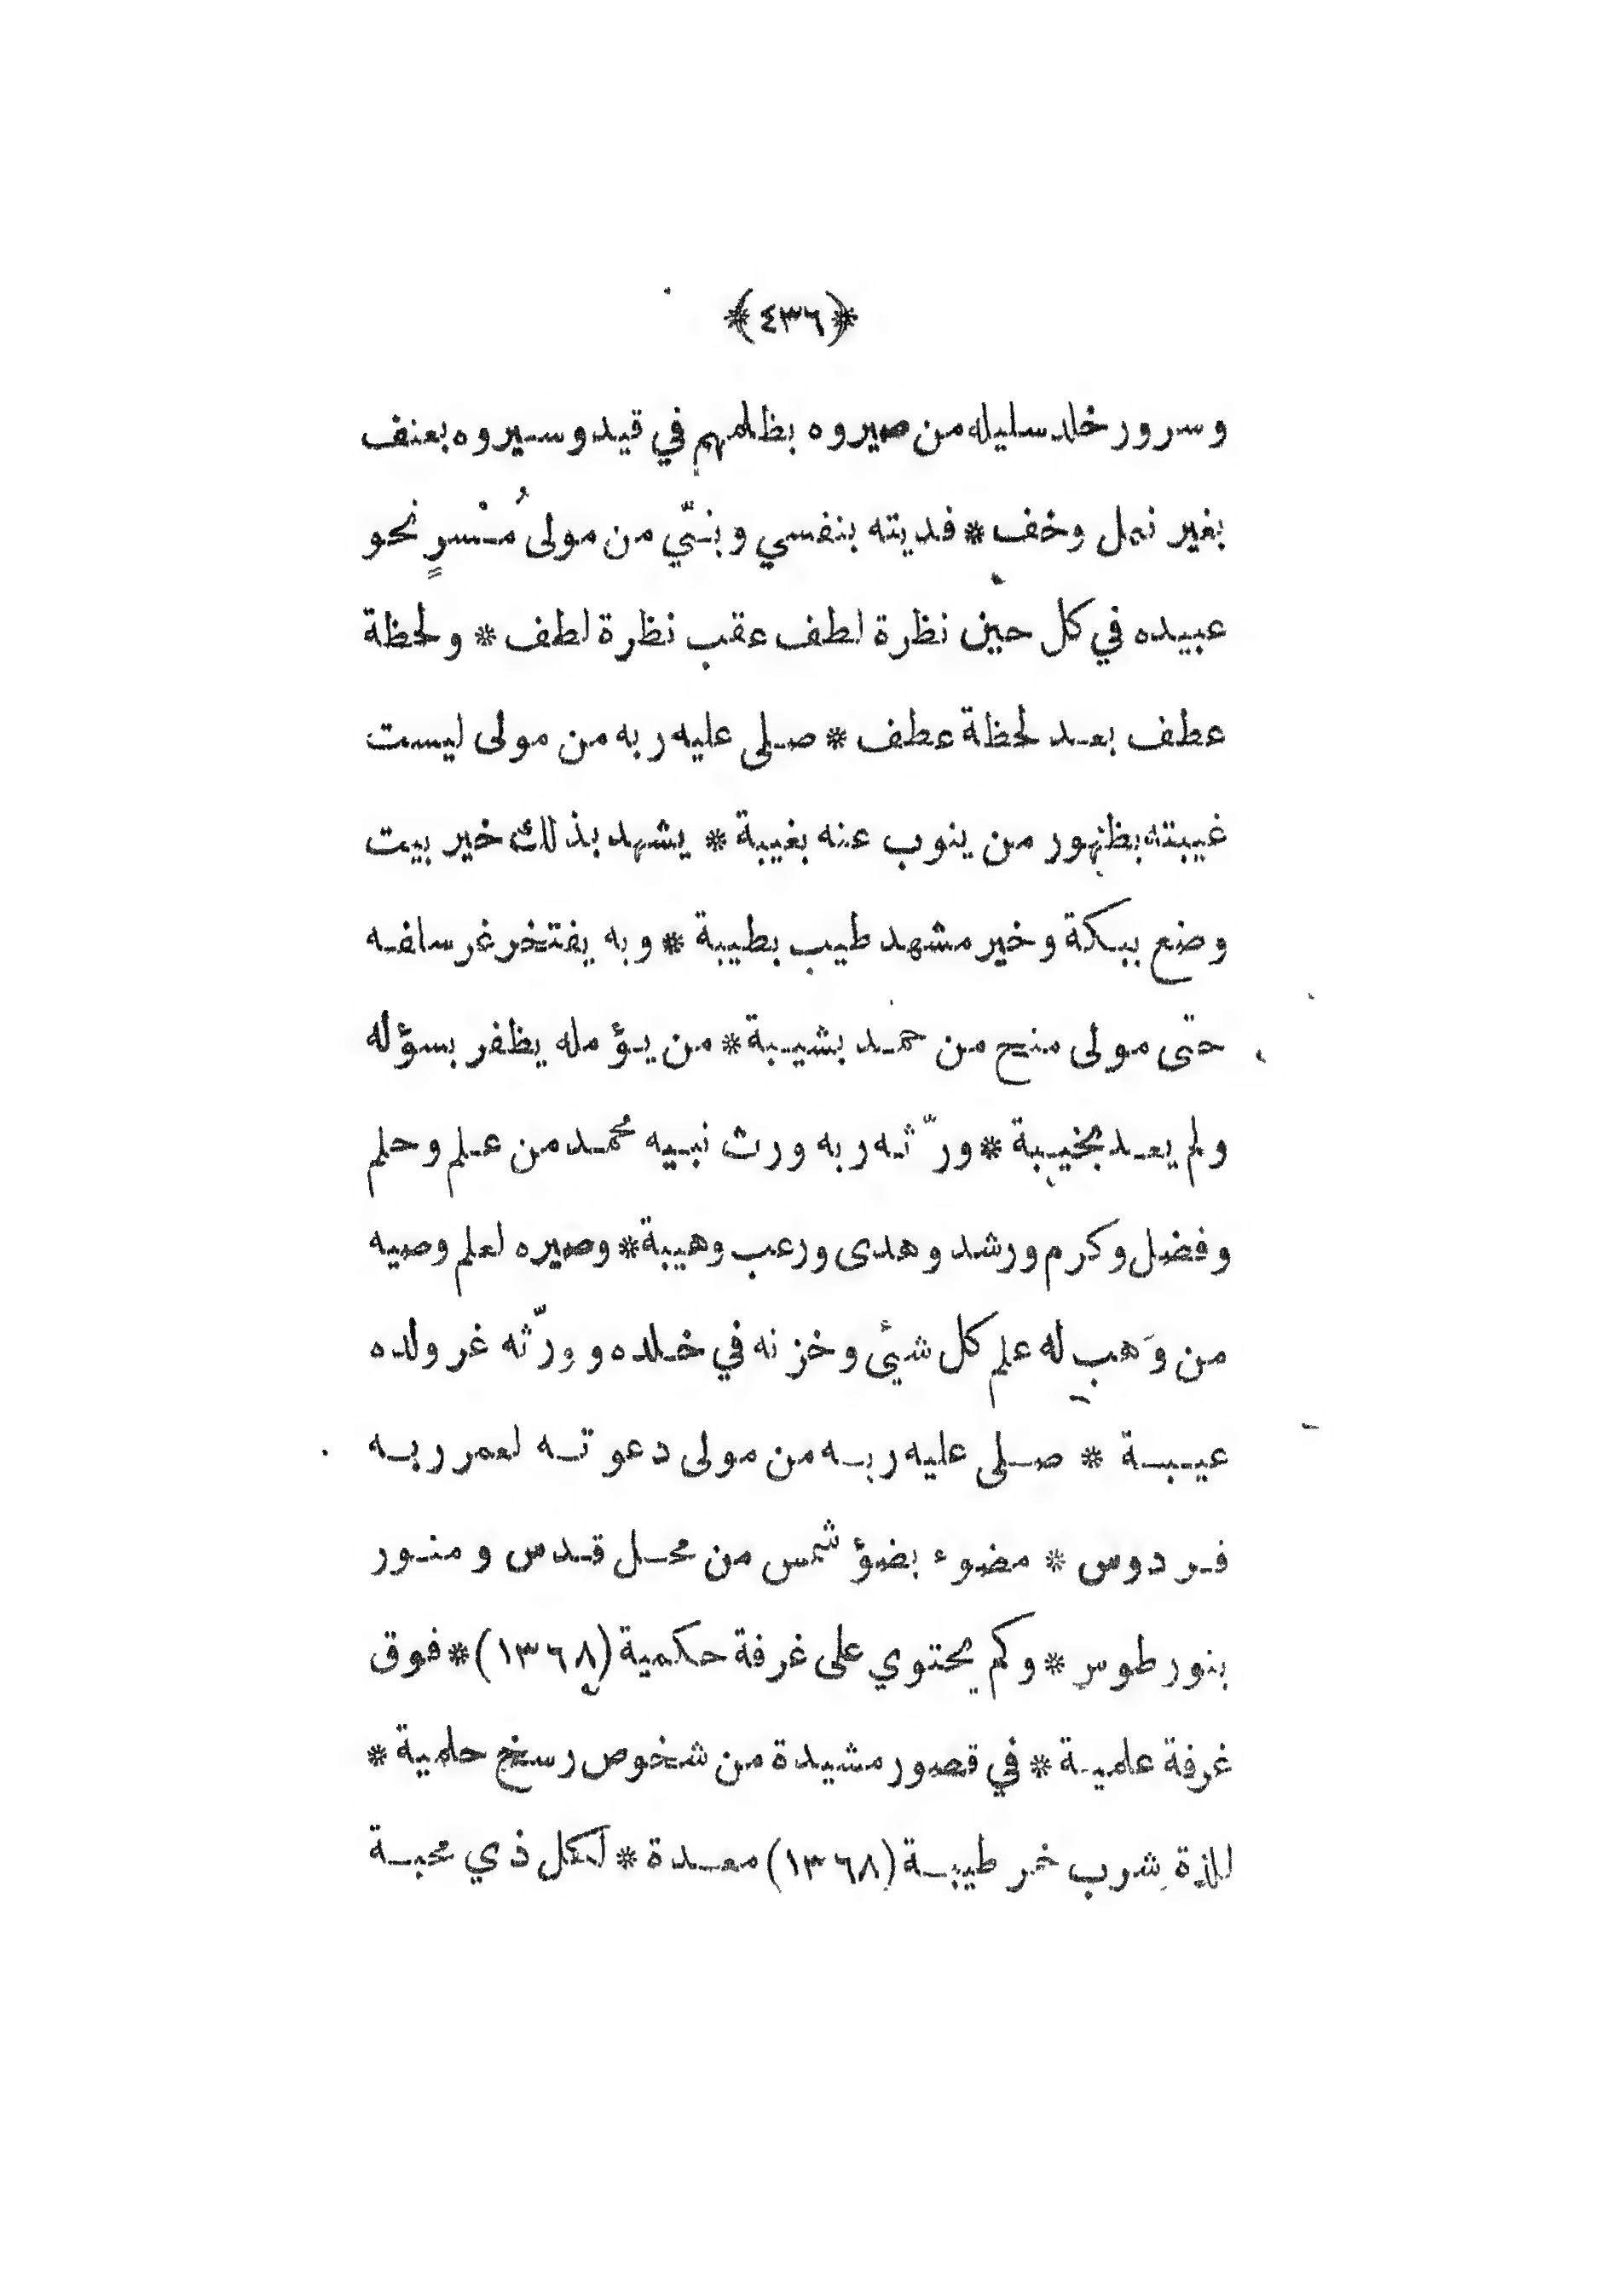 ﴿٤٣٦﴾
وسرور خلد سليله من صيروه بظلمهم في قيد وسيروه بعنف
بغير نعل وخف * فديته بنفسي وبنيّ من مولى مُنْسرٍ نحو
عبيده في كل حين نظرة لطف عقب نظرة لطف * ولحظة
عطف بعد لحظة عطف * صلى عليه ربه من مولى ليست
غيبته بظهور من ينوب عنه بغيبة * يشهد بذلك خير بيت
وضع ببكة وخير مشهد طيب بطيبة * وبه يفتخر غر سلفه
حتّى مولى منح من حمد بشيبة * من يؤمله يظفر بسؤله
ولم يعد بخيبة * ورّثه ربه ورث نبيه محمد من علم وحلم
وفضل وكرم ورشد وهدى ورعب وهيبة * وصيره لعلم وصيه
من وَهب له علم كل شيئ وخزنه في خلده وورّثه غر ولده
عيبة * صلى عليه ربه من مولى دعوته لعمر ربه
فردوس * مضوء بضؤ شمس من محل قدس ومنور
بنور طوس * وكم يحتوي على غرفة حكمية (١٣٦٨) * فوق
غرفة علمية * في قصور مشيدة من شخوص رسخ حلمية *
للذة شرب خمر طيبة (١٣٦٨) معدة * لكل ذي محبة